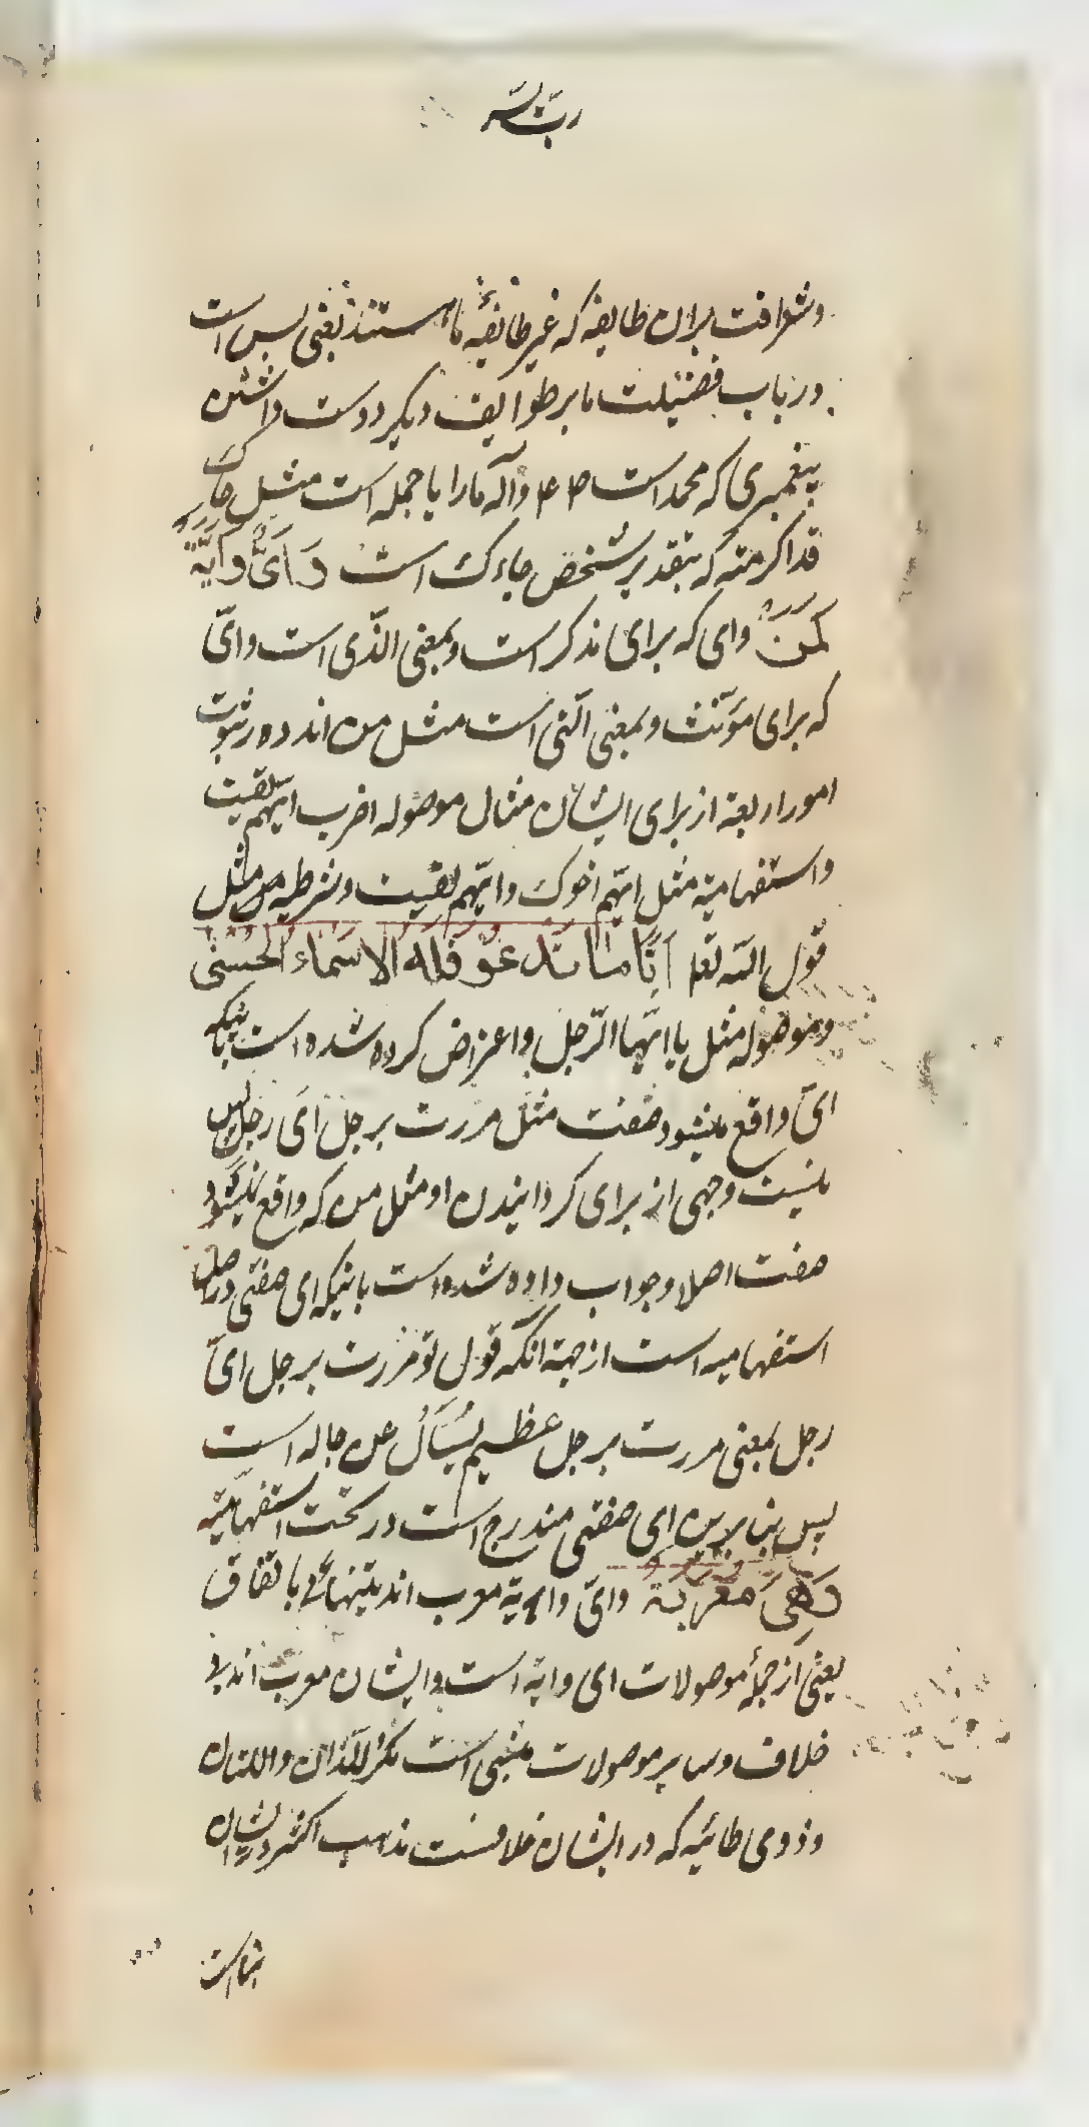 وشرافت بران طایفه که غیر طایفه ما هستند یعنی بس است
درباب فضیلت ما بر طوایف دیکر دوست داشتن
پیغمبری که محمد است وآله مارا یا جمله است مثل جاءک
قد اکرمته که بتقدیر شخص جاءک است وَاَیٌّ وَاَیَّةٌ
کَمَنْ وای که برای مذکر است وبمعنی الّذی است وایّ
که برای مؤنث وبمعنی الّتی است مثل من اند در ثبوت
امور اربعة از برای ایشان مثال موصوله اضرب ایّهم لقیت
واستفهامیّة مثل ایّهم اخوک وایّهم لقیت وشرطیه مثل
قول الله تعا اَیّامّا تَدعُو فَلَه الاَسماء الحُسنی
وموصوله مثل یا ایّها الرّجل واعتراض کرده شده است باینکه
ایّ واقع میشود صفت مثل مررت برجل ایّ رجل پس
نیست وجهی از برای کردانیدن او مثل من که واقع نمیشود
صفت اصلا وجواب داده شده است باینکه ای صفتی در اصل
استفهامیه است از جهة انکه قول تو مررت برجل ایّ
رجل بمعنی مررت برجل عظیم یُسْأَلُ عن حاله است
پس بنابرین ای صفتی مندرج است در تحت استفهامیّه
وَهِیَ مُعْرَبَة وایّ وایّة معرب اند بتنهائی باتفاق
یعنی از جملهٔ موصولات ای وایة است وایشان معرب اند بی
خلاف وسایر موصولات مبنی است مکر اللّذان واللتان
وذوی طائیه که در ایشان خلافست مذهب اکثر در ایشان
بناست